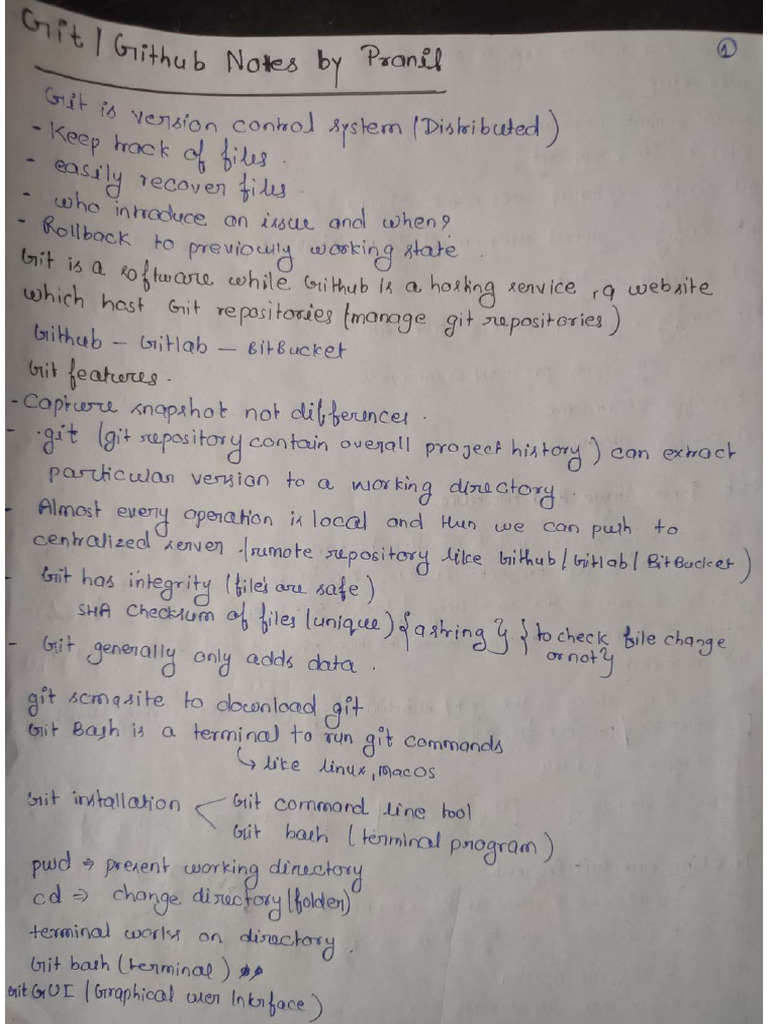 Git / Github Notes by Pranil
1
Git is version control system (Distributed)
- Keep track of files.
- easily recover files.
- who introduce an issue and when?
- Rollback to previously working state.
Git is a software while Github is a hosting service, a website
which host Git repositories (manage git repositories)
Github - Gitlab - BitBucket
Git features.
- Capture snapshot not differences.
- .git (git repository contain overall project history) can extract
particular version to a working directory.
- Almost every operation is local and then we can push to
centralized server (remote repository like Github / Gitlab / BitBucket)
- Git has integrity (files are safe)
SHA Checksum of files (unique) {a string} {to check file change
or not}
- Git generally only adds data.
git scm site to download git
Git Bash is a terminal to run git commands
↳ like linux, macos
Git installation < Git command line tool
Git bash (terminal program)
pwd ⇒ present working directory
cd ⇒ change directory (folder)
terminal works on directory.
Git bash (terminal)
Git GUI (Graphical user Interface)